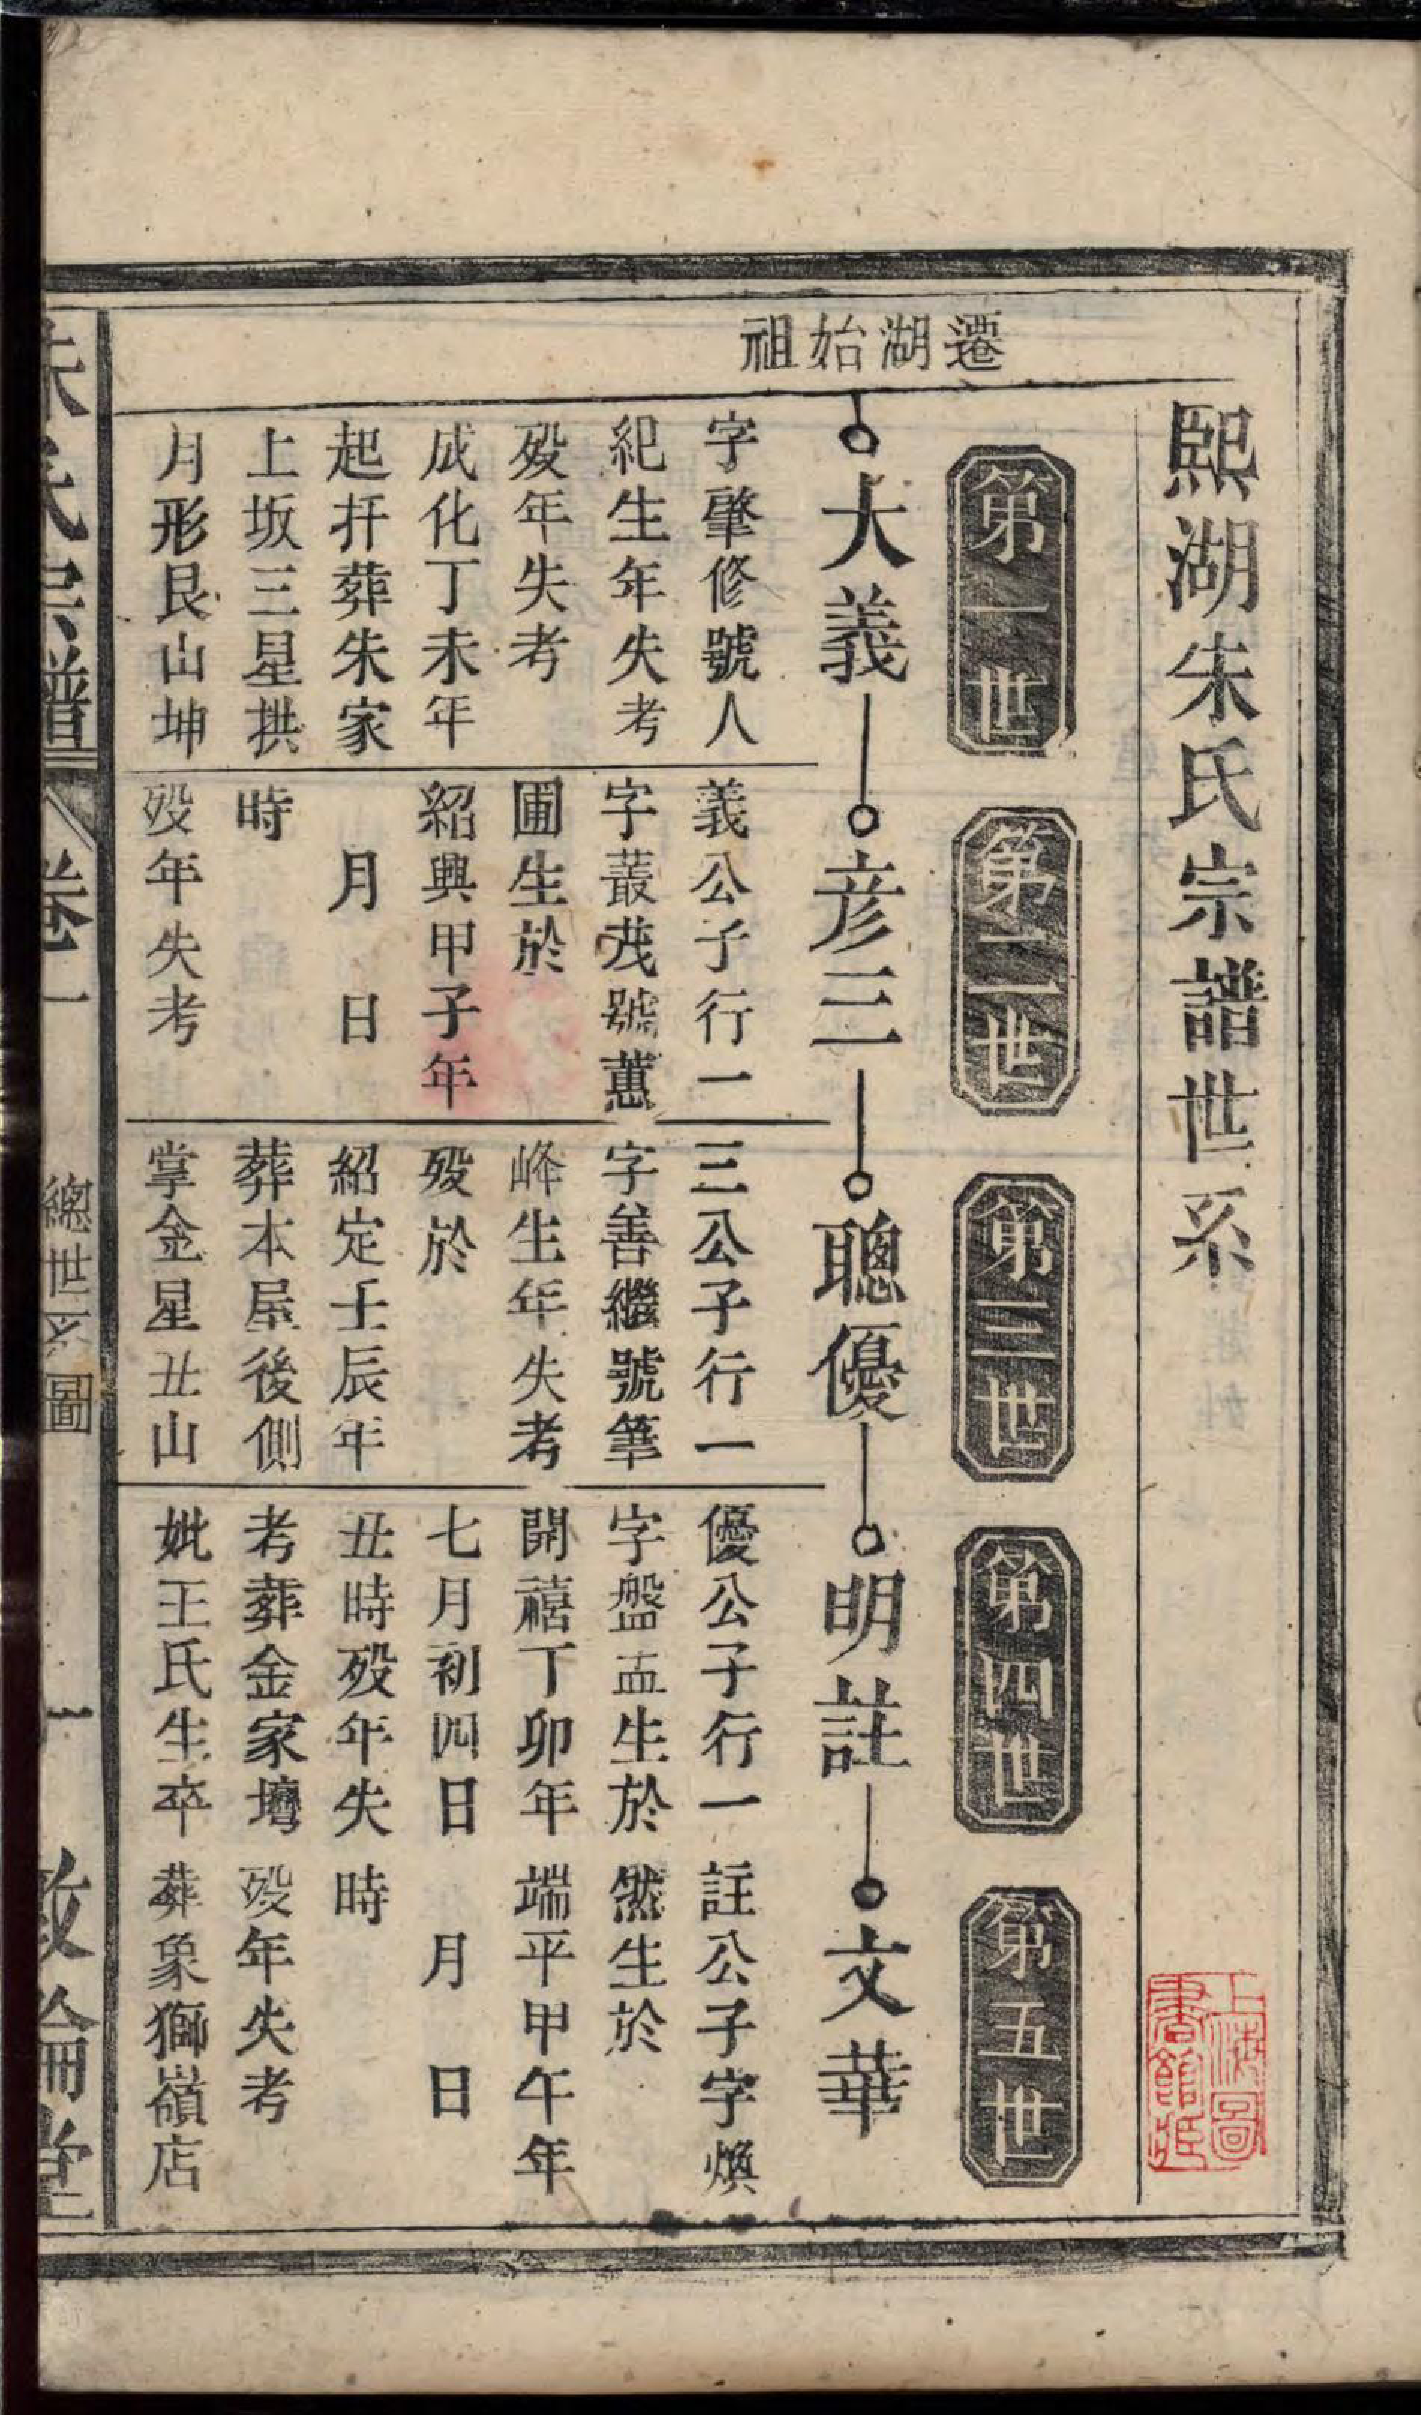 熙湖朱氏宗譜世系
上海圖書館藏
第一世
第二世
第三世
第四世
第五世
遷湖始祖
大義
彦三
聰優
明註
文華
字肇修號人
紀生年失考
歿年失考
成化丁未年
起扦葬朱家
上坂三星拱
月形艮山坤
義公子行一
字叢茂號蕙
圃生於
紹興甲子年
月 日
時
歿年失考
三公子行一
字善繼號筆
峰生年失考
歿於
紹定壬辰年
葬本屋後側
掌金星丑山
優公子行一
字盤盂生於
開禧丁卯年
七月初四日
丑時歿年失
考葬金家壪
妣王氏生卒
註公子字煥
然生於
端平甲午年
月 日
時
歿年失考
葬象獅嶺店
朱氏宗譜
卷一
總世系圖
一
敦倫堂